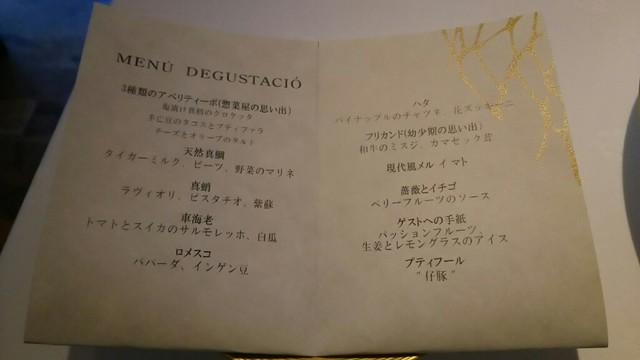 MENÚ DEGUSTACIÓ
3種類のアペリティーボ(惣菜屋の思い出)
塩漬け真鱈のクロケッタ
チーズとオリーブのタルト
天然真鯛
タイガーミルク、ビーツ、野菜のマリネ
真蛸
ラヴィオリ、ピスタチオ、紫蘇
車海老
トマトとスイカのサルモレッホ、白瓜
ロメスコ
パパーダ、インゲン豆
ハタ
パイナップルのチャツネ、花ズッキーニ
フリカンド(幼少期の思い出)
和牛のミスジ、カマセック茸
現代風メル イ マト
薔薇とイチゴ
ベリーフルーツのソース
ゲストへの手紙
パッションフルーツ、
生姜とレモングラスのアイス
プティフール
"仔豚"